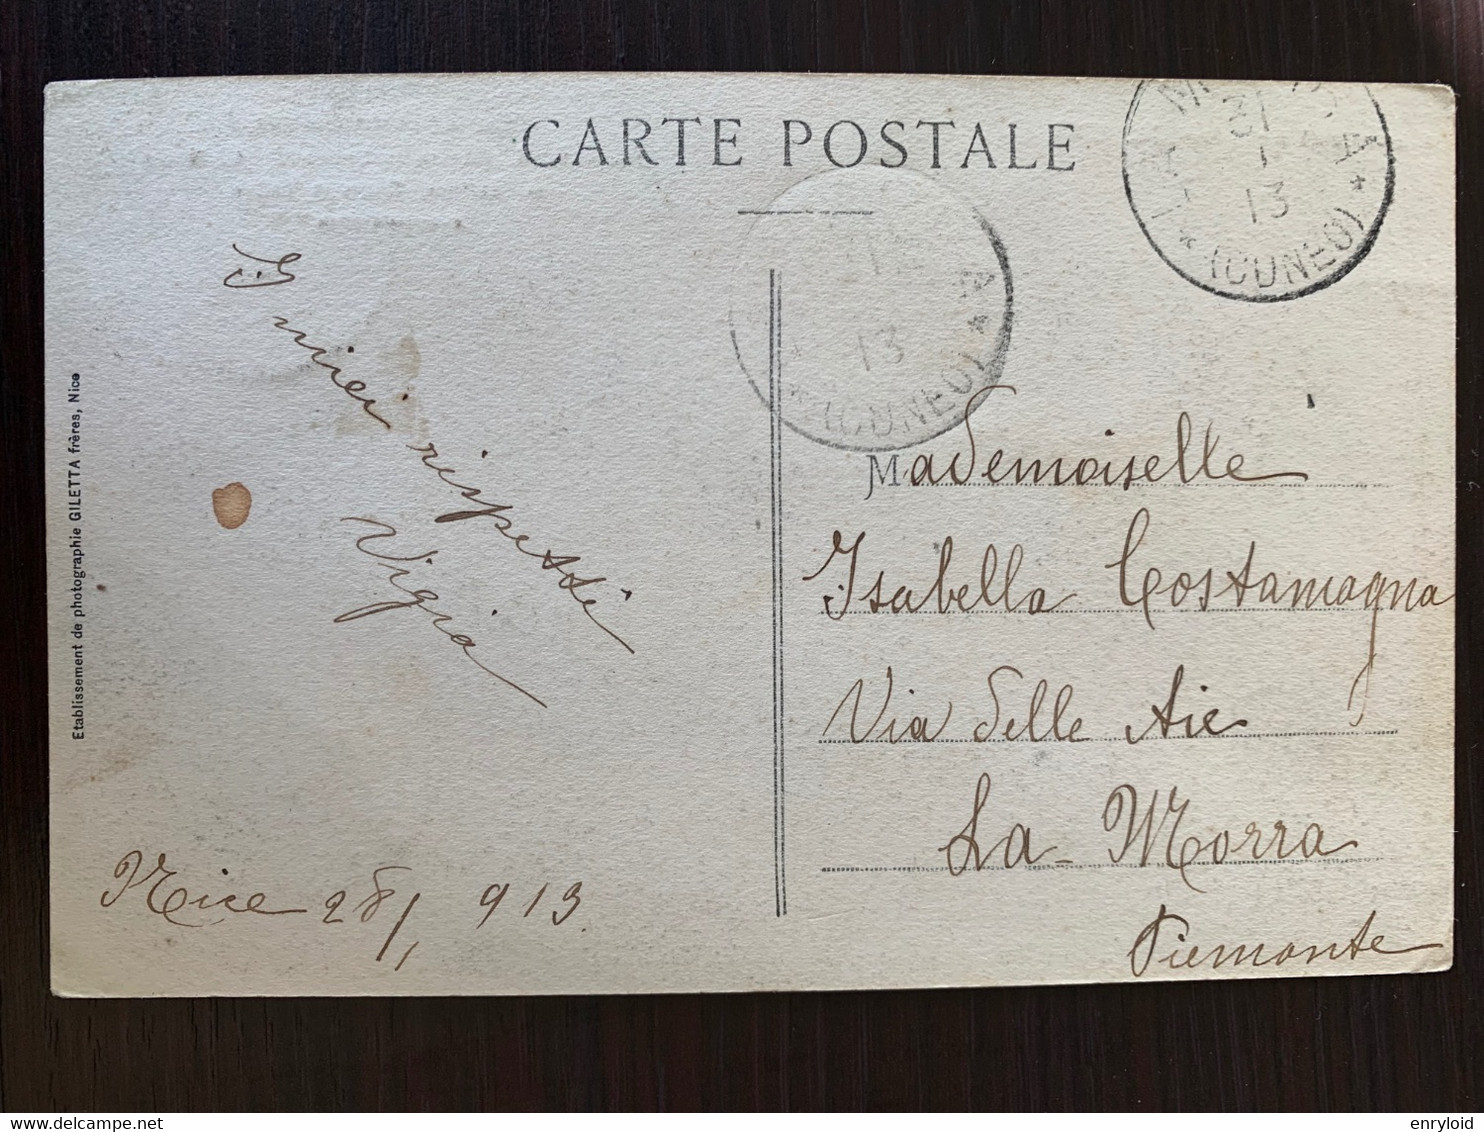 CARTE POSTALE
LA MORRA
31
1
13
* (CUNEO) *
13
* (CUNEO) *
I miei rispetti
Vigia
Nice 28/1 913
Mademoiselle
Isabella Costamagna
Via delle Aie
La-Morra
Piemonte
Etablissement de photographie GILETTA frères, Nice
enryloid